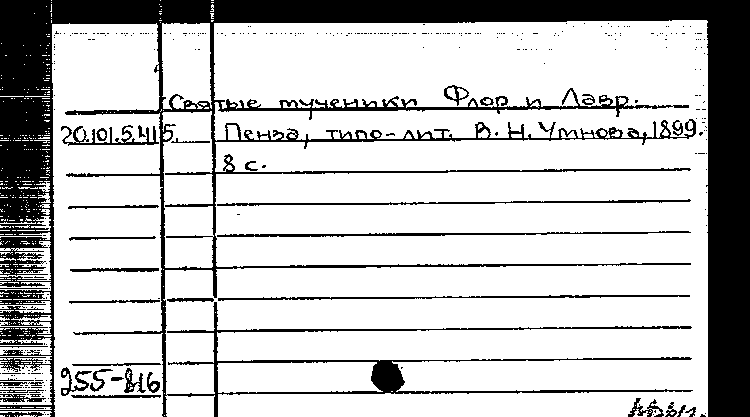 Святые мученики Флор и Лавр.
20.101.5.415. Пенза, типо-лит. В. Н. Умнова, 1899.
8 с.
255-816